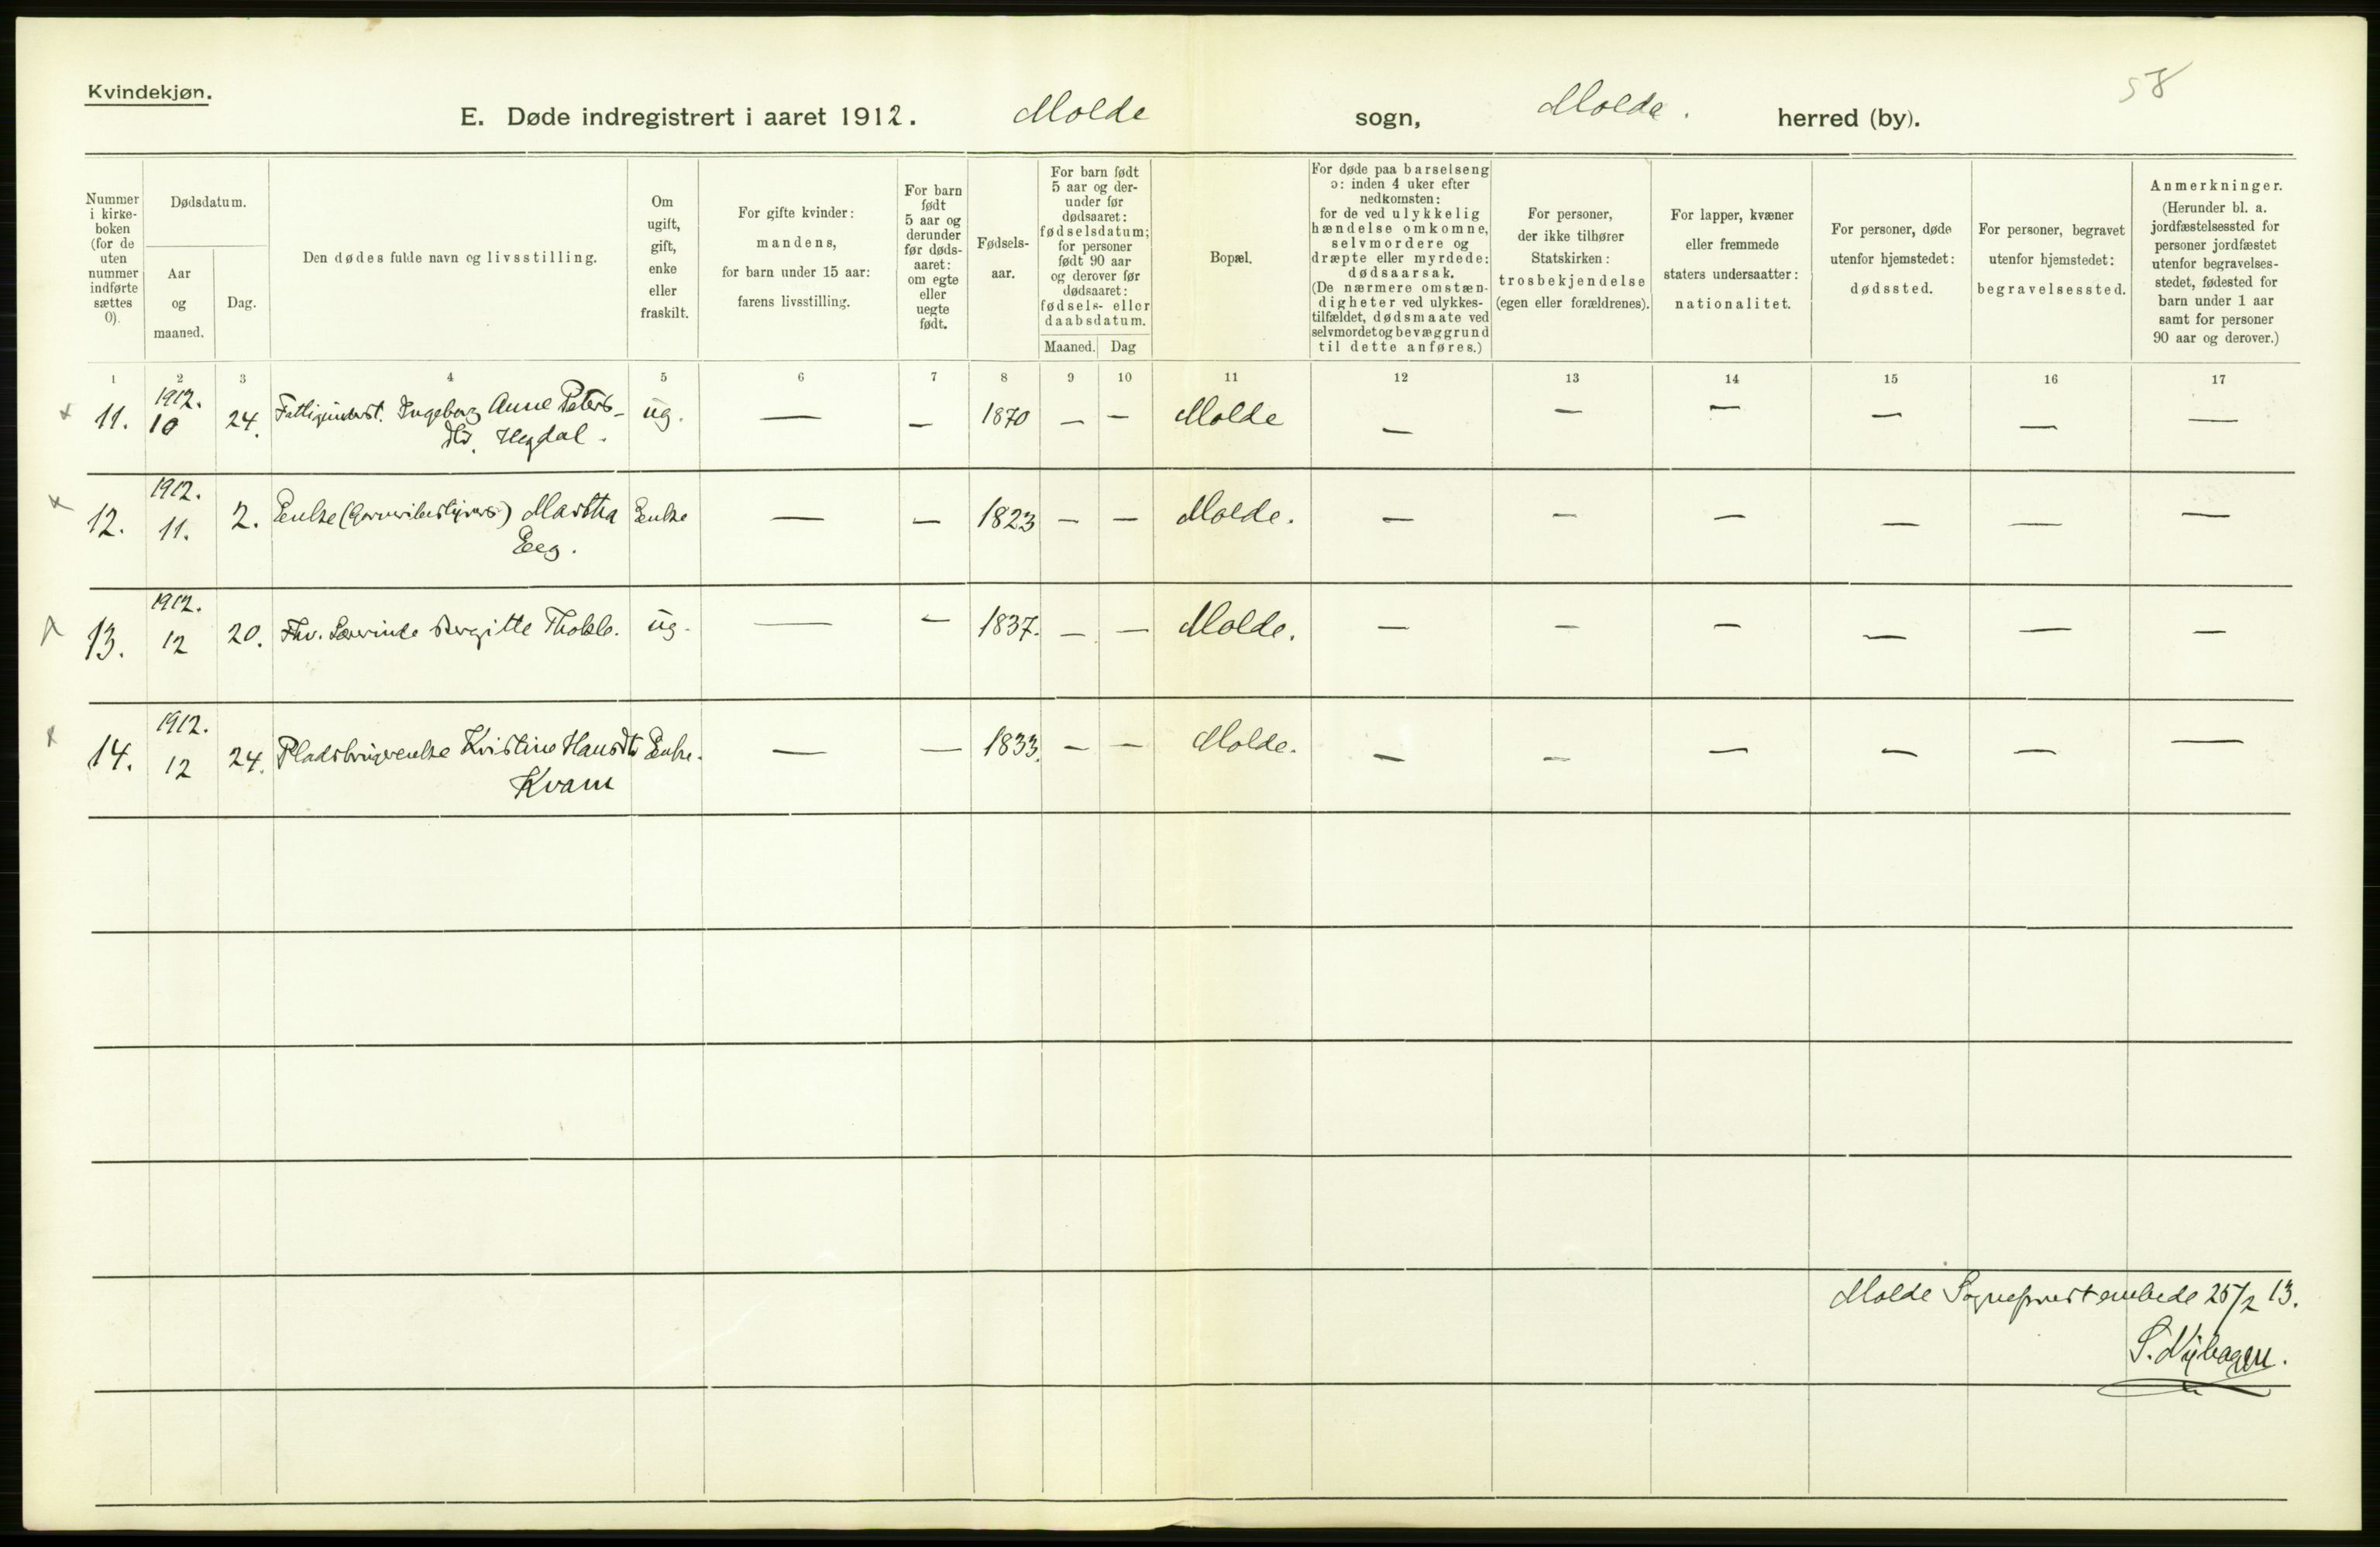 Kvindekjøn.
58
E. Døde indregistrert i aaret 1912. Molde sogn, Molde. herred (by).
Nummer i kirkeboken (for de uten nummer indførte sættes 0).
Dødsdatum.
Aar og maaned.
Dag.
Den dødes fulde navn og livsstilling.
Om ugift, gift, enke eller fraskilt.
For gifte kvinder: mandens, for barn under 15 aar: farens livsstilling.
For barn født 5 aar og derunder før dødsaaret: om egte eller uegte født.
Fødselsaar.
For barn født 5 aar og derunder før dødsaaret: fødselsdatum; for personer født 90 aar og derover før dødsaaret: fødsels- eller daabsdatum.
Maaned. Dag
Bopæl.
For døde paa barselseng ɔ: inden 4 uker efter nedkomsten: for de ved ulykkelig hændelse omkomne, selvmordere og dræpte eller myrdede: dødsaarsak. (De nærmere omstændigheter ved ulykkestilfældet, dødsmaate ved selvmordet og bevæggrund til dette anføres.)
For personer, der ikke tilhører Statskirken: trosbekjendelse (egen eller forældrenes).
For lapper, kvæner eller fremmede staters undersaatter: nationalitet.
For personer, døde utenfor hjemstedet: dødssted.
For personer, begravet utenfor hjemstedet: begravelsessted.
Anmerkninger. (Herunder bl. a. jordfæstelsessted for personer jordfæstet utenfor begravelsesstedet, fødested for barn under 1 aar samt for personer 90 aar og derover.)
1 2 3 4 5 6 7 8 9 10 11 12 13 14 15 16 17
1912.
11. 10 24. Ingeborg Anne Peters- ug. — — 1870 — — Molde — — — — — —
1912.
12. 11. 2. Enke Martha Enke — — 1823 — — Molde. — — — — — —
Eeg.
1912.
13. 12 20. Fhv. Lærerinde Bergitte ug. — — 1837. — — Molde. — — — — — —
1912.
14. 12 24. Pladsbrugerenke Kristine Hansdtr Enke. — — 1833. — — Molde. — — — — — —
Kvam
Molde Sogneprestembede 25/2 13.